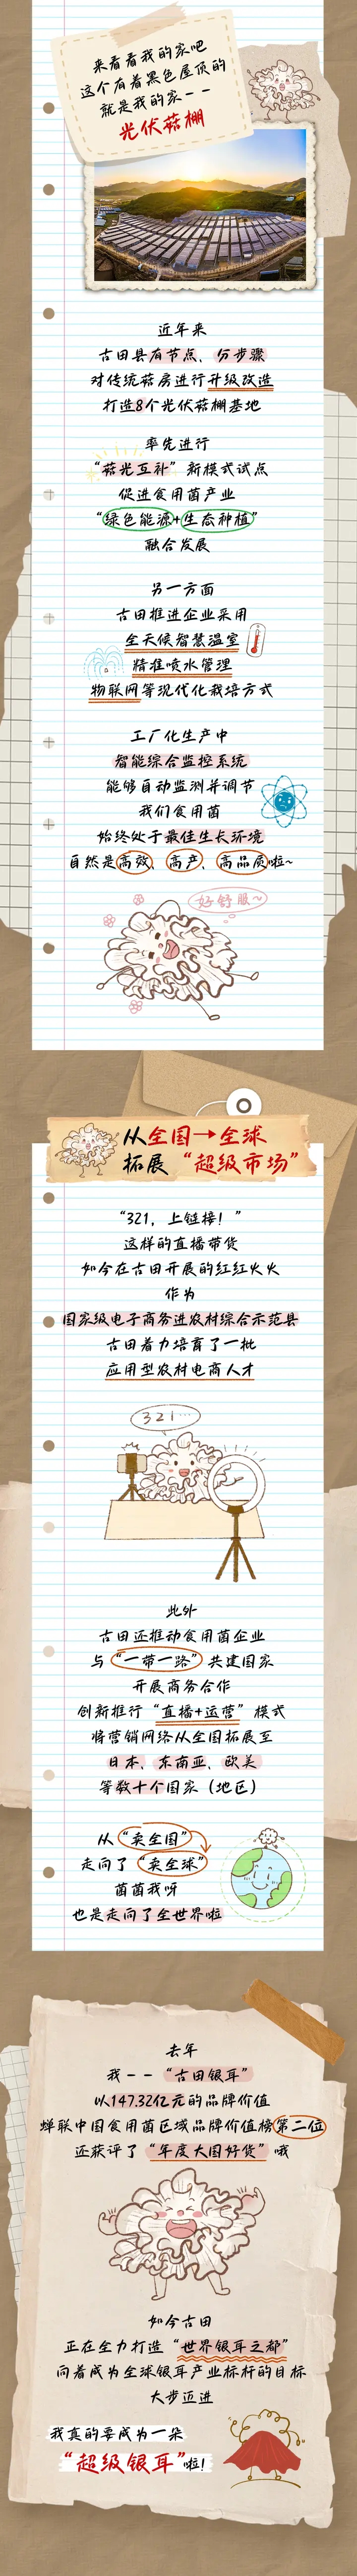 来看看我的家吧
这个有着黑色屋顶的
就是我的家--
光伏菇棚
近年来
古田县有节点、分步骤
对传统菇房进行升级改造
打造8个光伏菇棚基地
率先进行
“菇光互补”新模式试点
促进食用菌产业
“绿色能源+生态种植”
融合发展
另一方面
古田推进企业采用
全天候智慧温室
精准喷水管理
物联网等现代化栽培方式
工厂化生产中
智能综合监控系统
能够自动监测并调节
我们食用菌
始终处于最佳生长环境
自然是高效、高产、高品质啦~
好舒服~
从全国→全球
拓展“超级市场”
“321，上链接！”
这样的直播带货
如今在古田开展的红红火火
作为
国家级电子商务进农村综合示范县
古田着力培育了一批
应用型农村电商人才
321…
此外
古田还推动食用菌企业
与“一带一路”共建国家
开展商务合作
创新推行“直播+运营”模式
将营销网络从全国拓展至
日本、东南亚、欧美
等数十个国家（地区）
从“卖全国”
走向了“卖全球”
菌菌我呀
也是走向了全世界啦
去年
我--“古田银耳”
以147.32亿元的品牌价值
蝉联中国食用菌区域品牌价值榜第二位
还获评了“年度大国好货”哦
如今古田
正在全力打造“世界银耳之都”
向着成为全球银耳产业标杆的目标
大步迈进
我真的要成为一朵
“超级银耳”啦！